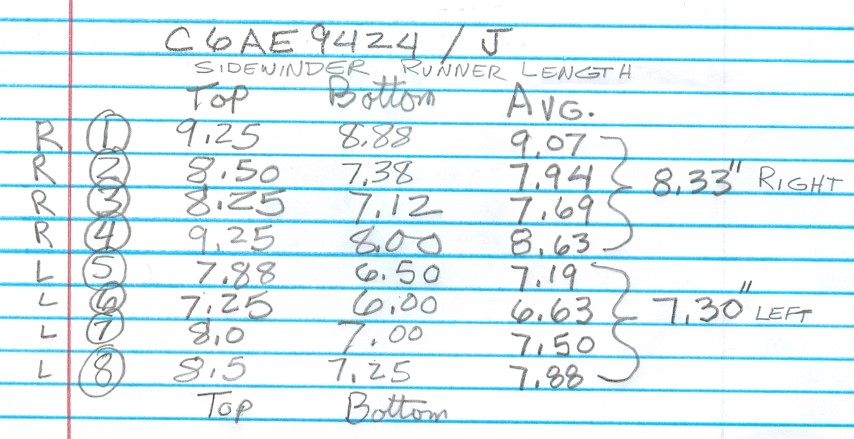 C6AE 9424 / J
SIDEWINDER RUNNER LENGTH
Top Bottom AVG.
R 1 9.25 8.88 9.07
R 2 8.50 7.38 7.94 8.33" RIGHT
R 3 8.25 7.12 7.69
R 4 9.25 8.00 8.63
L 5 7.88 6.50 7.19
L 6 7.25 6.00 6.63 7.30" LEFT
L 7 8.0 7.00 7.50
L 8 8.5 7.25 7.88
Top Bottom